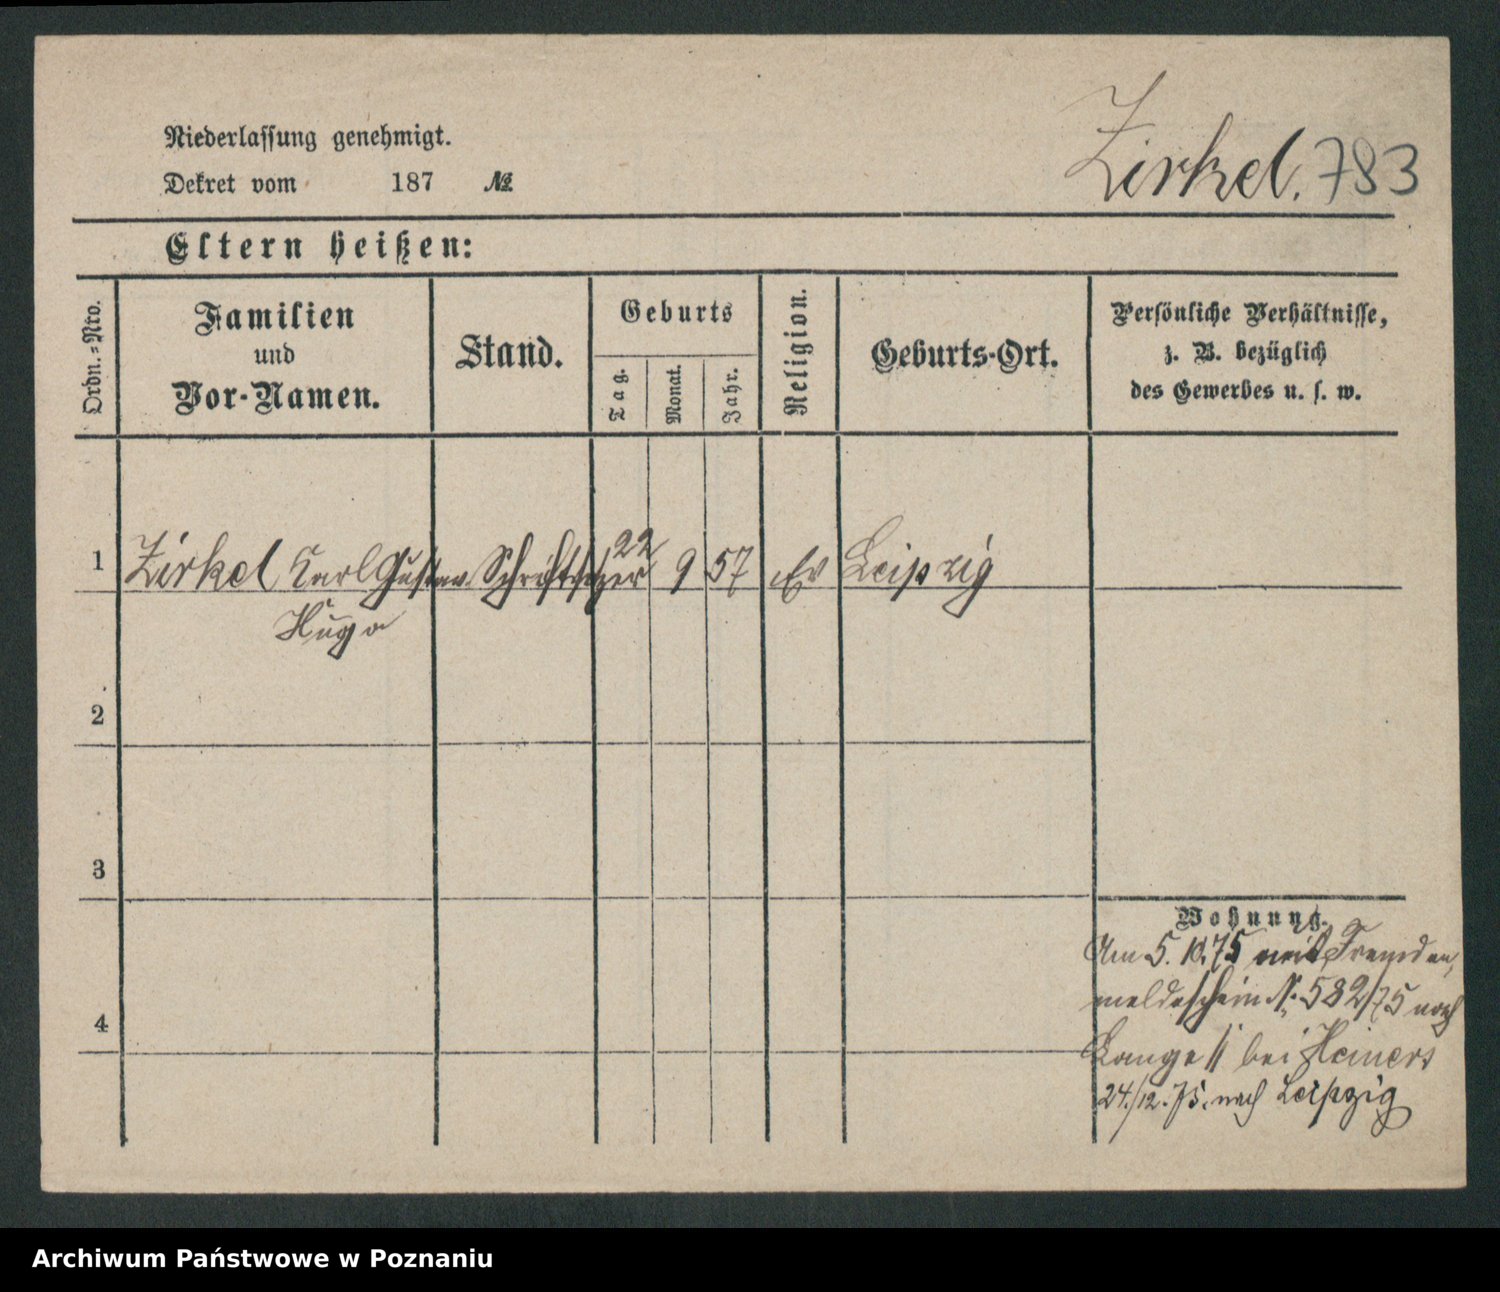 Niederlassung genehmigt.
Dekret vom 187 №
Zirkel. 783
Eltern heißen:
Ordn.=Nro.
Familien
und
Vor-Namen.
Stand.
Geburts
Tag.
Monat.
Jahr.
Religion.
Geburts-Ort.
Persönliche Verhältnisse,
z. B. bezüglich
des Gewerbes u. s. w.
1 Zirkel Carl Gustav Schriftsetzer 22 9 57 Ev Leipzig
Hugo
2
3
4
Wohnung.
Am 5. 10. 75 mit Fremden,
meldeschein N. 582/75 nach
Lange bei Heiners
24./12. 75. nach Leipzig
Archiwum Państwowe w Poznaniu